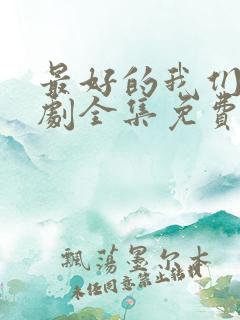 最好的我们
劇全集免費
飄蕩墨尔本
未任同意禁止转载